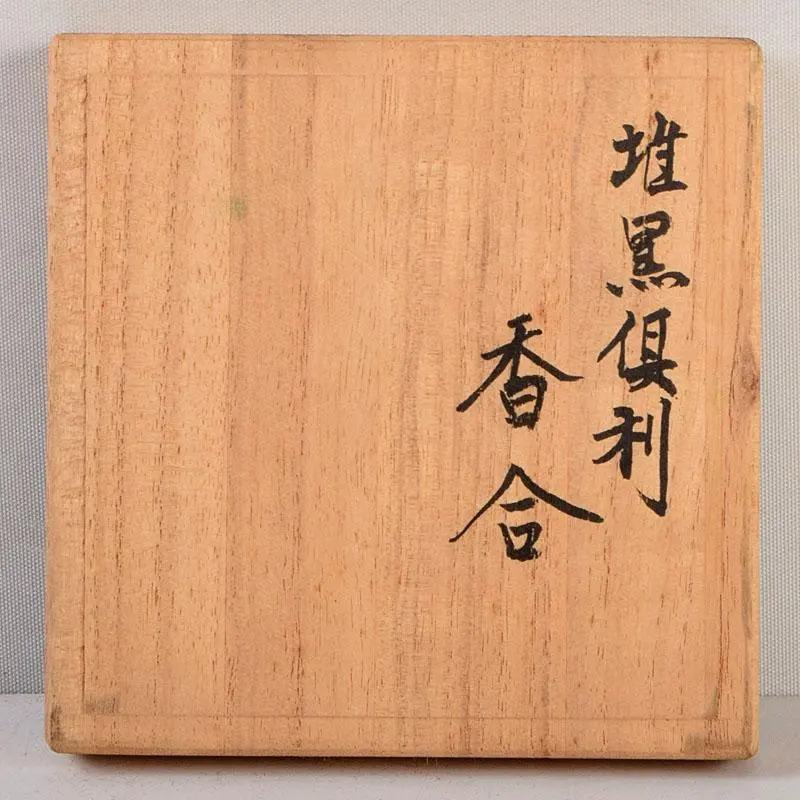 堆黒倶利
香合